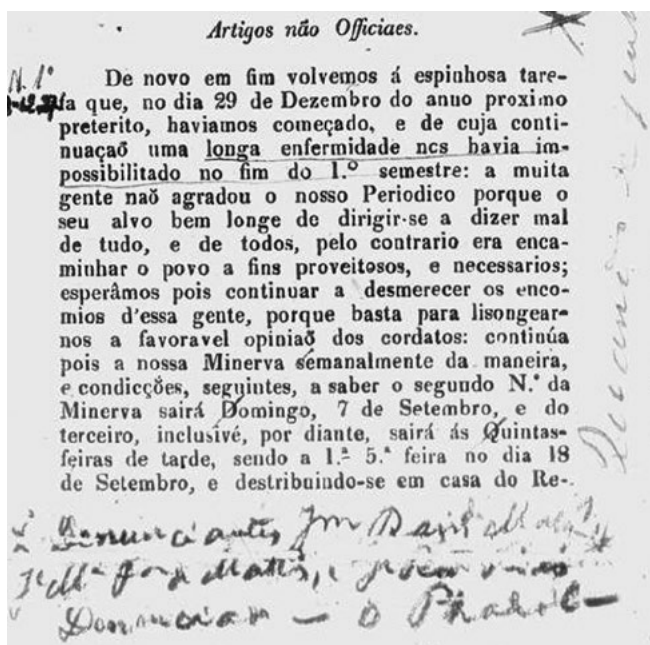 Artigos não Officiaes.
N. 1º
De novo em fim volvemos á espinhosa tare-
fa que, no dia 29 de Dezembro do anno proximo
preterito, haviamos começado, e de cuja conti-
nuaçaõ uma longa enfermidade ncs havia im-
possibilitado no fim do 1.º semestre: a muita
gente naõ agradou o nosso Periodico porque o
seu alvo bem longe de dirigir-se a dizer mal
de tudo, e de todos, pelo contrario era enca-
minhar o povo a fins proveitosos, e necessarios;
esperâmos pois continuar a desmerecer os enco-
mios d'essa gente, porque basta para lisongear-
nos a favoravel opiniaõ dos cordatos: continúa
pois a nossa Minerva semanalmente da maneira,
e condicções, seguintes, a saber o segundo N.º da
Minerva sairá Domingo, 7 de Setembro, e do
terceiro, inclusivé, por diante, sairá ás Quintas-
feiras de tarde, sendo a 1.ª 5.ª feira no dia 18
de Setembro, e destribuindo-se em casa do Re-
Denunciantes
Denunciar — o